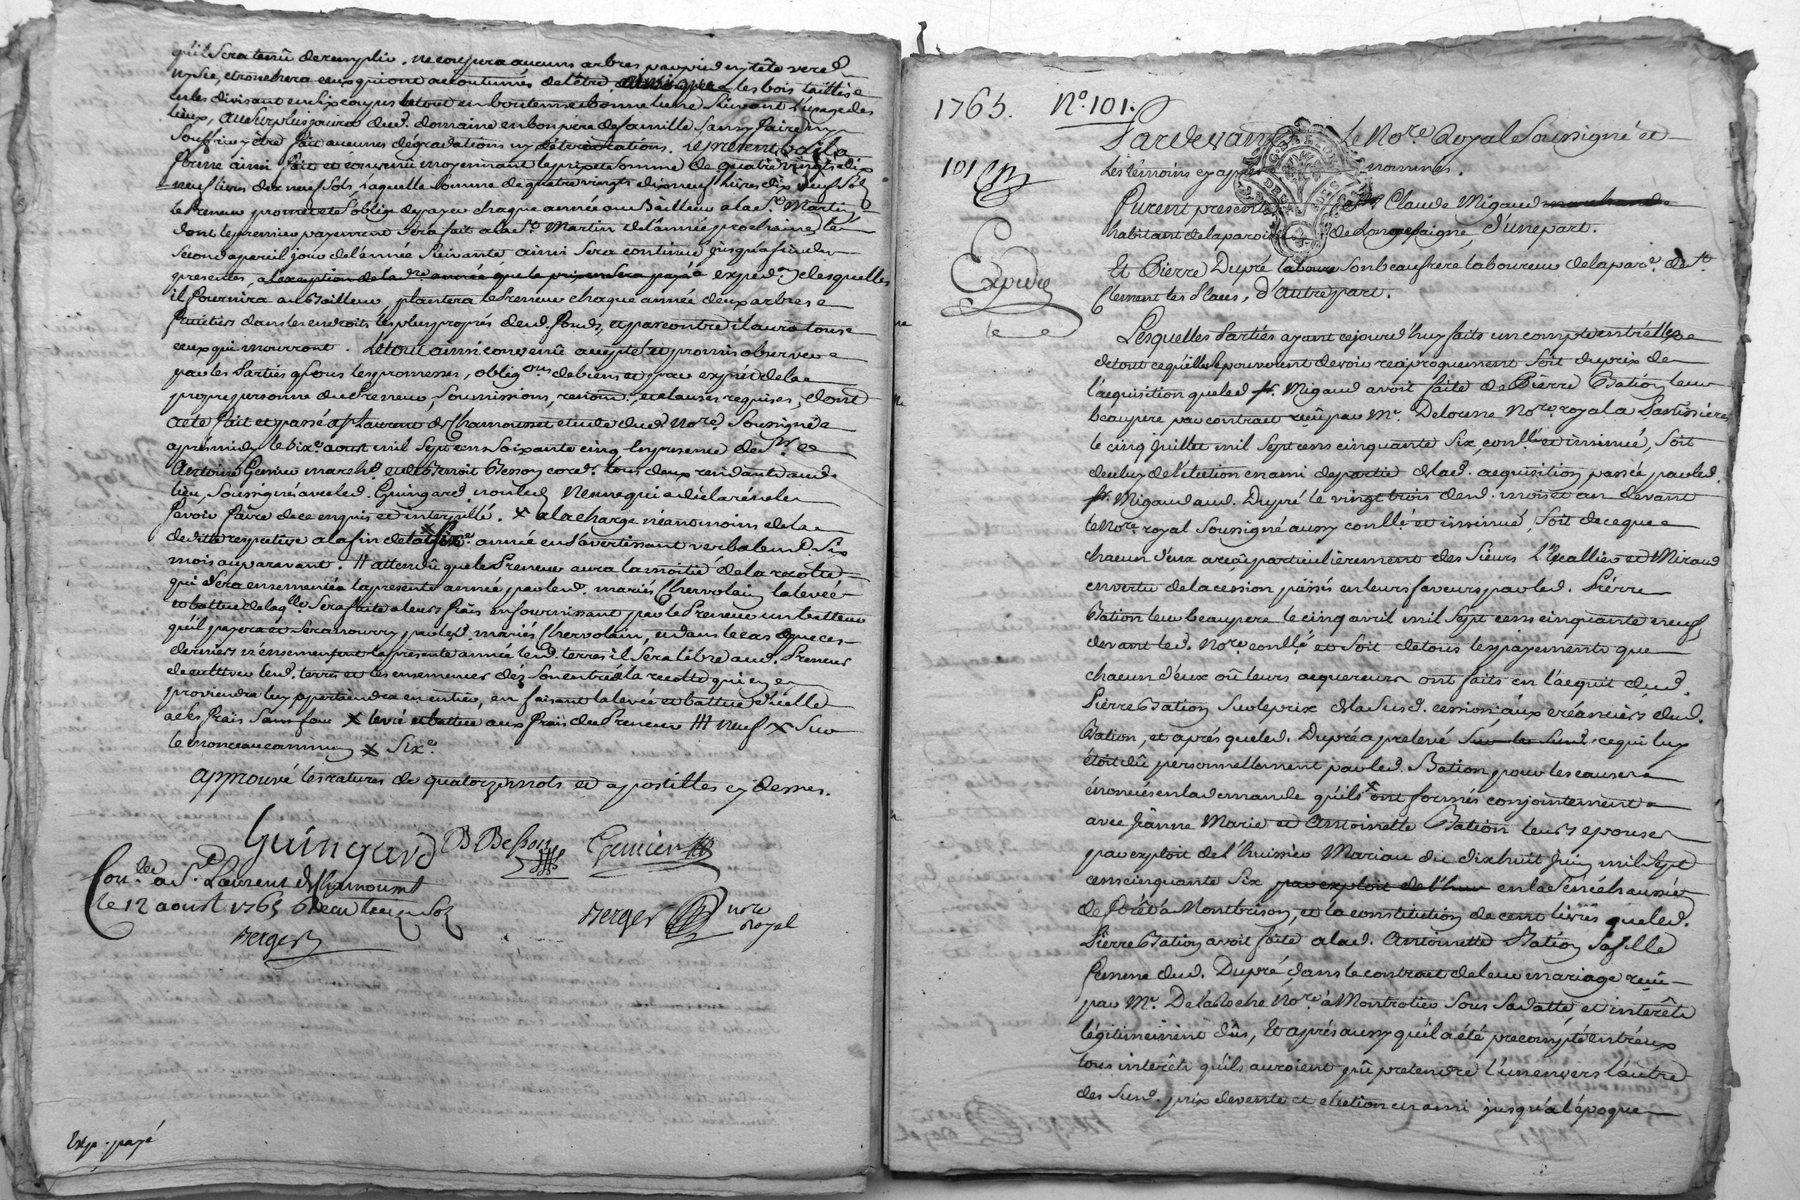 qu'il sera tenû de remplir. ne coupera aucuns arbres par pied ny tête verd
ny sec, ébranchera ceux qui ont accoutumés de l'être, les bois taillis
en les divisant en six coupes le tout en bon tems et bonne lune suivant l'usage des
lieux, au surplus jouira dud. domaine en bon père de famille sans y faire ny
souffrir y être fait aucunes dégradations ny détériorations. le présent bail à
ferme ainsi fait et convenû moyennant le prix et somme de quatre vingts dix
neuf livres dix neuf sols, laquelle somme de quatre vingts dix neuf livres dix neuf sols
le Preneur promet et s'oblige de payer chaque année au Bailleur à la St. Martin
dont le premier payement sera fait à la St. Martin de l'année prochaine le
second à pareil jour de l'année suivante ainsi sera continué jusqu'à fin des
presentes, à l'exception de la dre. année que le prix en sera payé expéd. desquelles
il fournira au Bailleur, plantera le Preneur chaque année deux arbres
fruitiers dans les endroits les plus propres desd. fonds, et par contre il aura tous
ceux qui mourront. Le tout ainsi convenû accepté et promis observer
par les Parties sous les promesses, oblig.ons de biens et par exprès de la
propre personne du Preneur, soumissions, renon.ns et clauses requises, dont
acte fait et passé à St Laurent de Chamousset etude dud. Nore. soussigné
après midy le dixe. aoust mil sept cens soixante cinq en presence de Sr.
Antoine Genier march. et de Benoit Besson cord. tous deux residants aud.
lieu, soussignés avec led. Guingard non led. Preneur qui a déclaré ne le
savoir faire de ce enquis et interpellé. x à la charge néanmoins de la
dedite respective à la fin de la x six.e année en s'avertissant verbalem.t six
mois auparavant. # attendû que le Preneur aura la moitié de la recolte
qui sera ensemencée la presente année par led. mariés Chervolain la levée
et battue de laq.lle sera faite à leurs frais en fournissant par le Preneur un batteur
qu'il payera et sera nourry par lesd. mariés Chervolain, et dans le cas que ces
derniers n'ensemencent la présente année lesd. terres il sera libre aud. Preneur
de cultiver lesd. terres et les ensemencer dès son entrée la recolte qui en
proviendra luy appartiendra en entier, en faisant la levée et battue d'icelle
à ses frais sans fraude x levée et battue aux frais du Preneur /// neuf x sur
le monceau commun x six.e
approuvé les ratures de quatorze mots et apostilles cy dessus.
Guingard B Besson Genier
Con.llé a St. Laurent de Chamousset
le 12 aoust 1765
Berger
Berger nore royal
Exp. payé
1765. No. 101.
Pardevant le Nore. Royal Soussigné et
les témoins cy après nommés.
101
Furent presents Sr. Claude Migaud marchand
habitant de la paroisse de Longessaigne, d'une part.
Expédié
Et Pierre Dupré son beaufrere laboureur de la par.e de St.
Clement les Places, d'autre part.
Lesquelles Parties ayant cejourd'huy faits un compte entr'elles
de tout ce qu'elles pouvoient devoir reciproquement soit du prix de
l'acquisition que led. Sr. Migaud avoit faite de Pierre Bation leur
beaupere par contrat reçû par Me. Delorme Nore. royal à Panissières
le cinq juillet mil sept cens cinquante six, conllé et insinué, soit
de celuy de l'élection en ami de partie de lad. acquisition passée par led.
Sr. Migaud aud. Dupré le vingt trois desd. mois et an devant
le Nore. royal soussigné aussy conllé et insinué, soit de ce que
chacun d'eux a reçû particulièrement des Sieurs L'huallier et Miraud
en vertu de la cession passés en leurs faveurs par led. Pierre
Bation leur beaupere le cinq avril mil sept cens cinquante neuf,
devant led. Nore. conllé et soit de tous les payements que
chacun d'eux où leurs acquereurs ont faits en l'acquit dud.
Pierre Bation sur le prix de la susd. cession aux créanciers dud.
Bation, et après que led. Dupré a prelevé sur la susd. ce qui luy
étoit dû personnellement par led. Bation, pour les causes
énoncées en la demande qu'ils ont formés conjointement
avec Jeanne Marie et Antoinette Bation leurs epouses
par exploit de l'huissier Mariau du dix huit juin mil sept
cens cinquante six par exploit de l'huis en la Sénéchaussée
de Forêt à Montbrison, et la constitution de cent livres que led.
Pierre Bation avoit faite à lad. Antoinette Bation sa fille
femme dud. Dupré, dans le contrat de leur mariage reçû
par Me. Delaroche Nore. à Montrotier sous sa datte, et interêts
légitimement dûs, Et après aussy qu'il a été précompté entr'eux
tous interêts qu'ils auroient pû pretendre l'un envers l'autre
des susd. prix de vente et election en ami jusqu'à l'époque